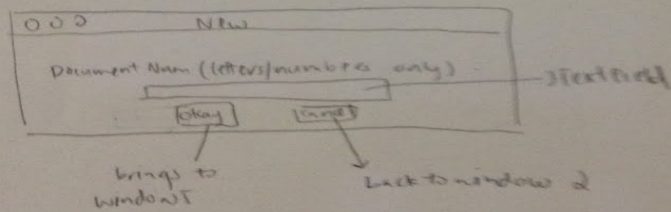 New
Document Nam (letters/numbers only)
JTextField
Okay
Cancel
brings to
window 5
back to window 2